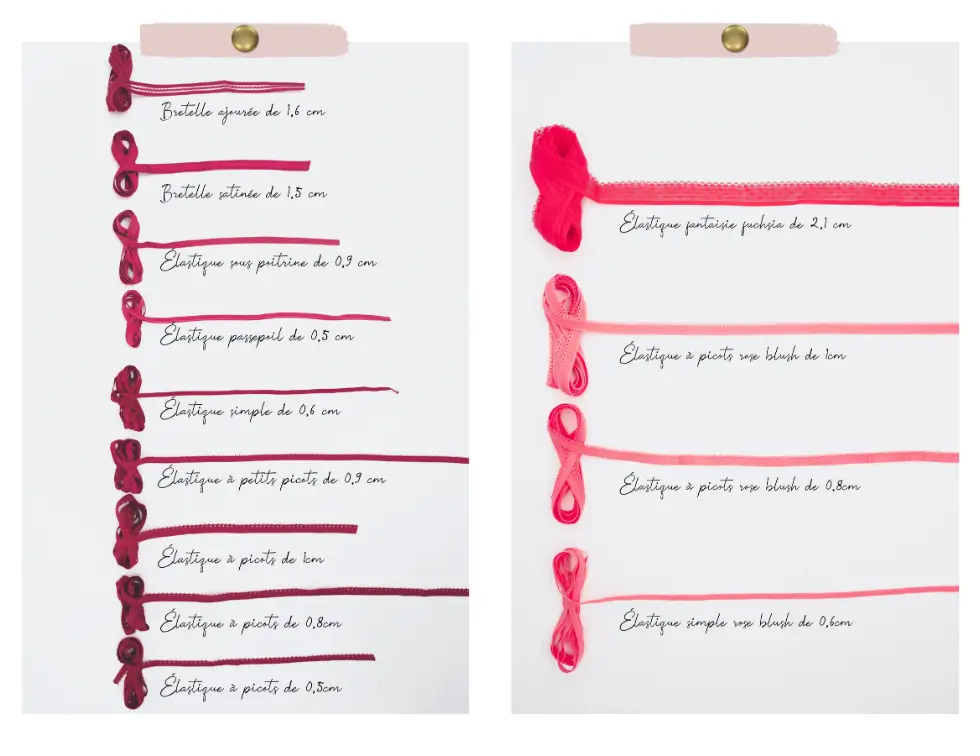 Bretelle ajourée de 1,6 cm
Bretelle satinée de 1,5 cm
Élastique sous poitrine de 0,9 cm
Élastique passepoil de 0,5 cm
Élastique simple de 0,6 cm
Élastique à petits picots de 0,9 cm
Élastique à picots de 1cm
Élastique à picots de 0,8cm
Élastique à picots de 0,5cm
Élastique fantaisie fuchsia de 2,1 cm
Élastique à picots rose blush de 1cm
Élastique à picots rose blush de 0,8cm
Élastique simple rose blush de 0,6cm